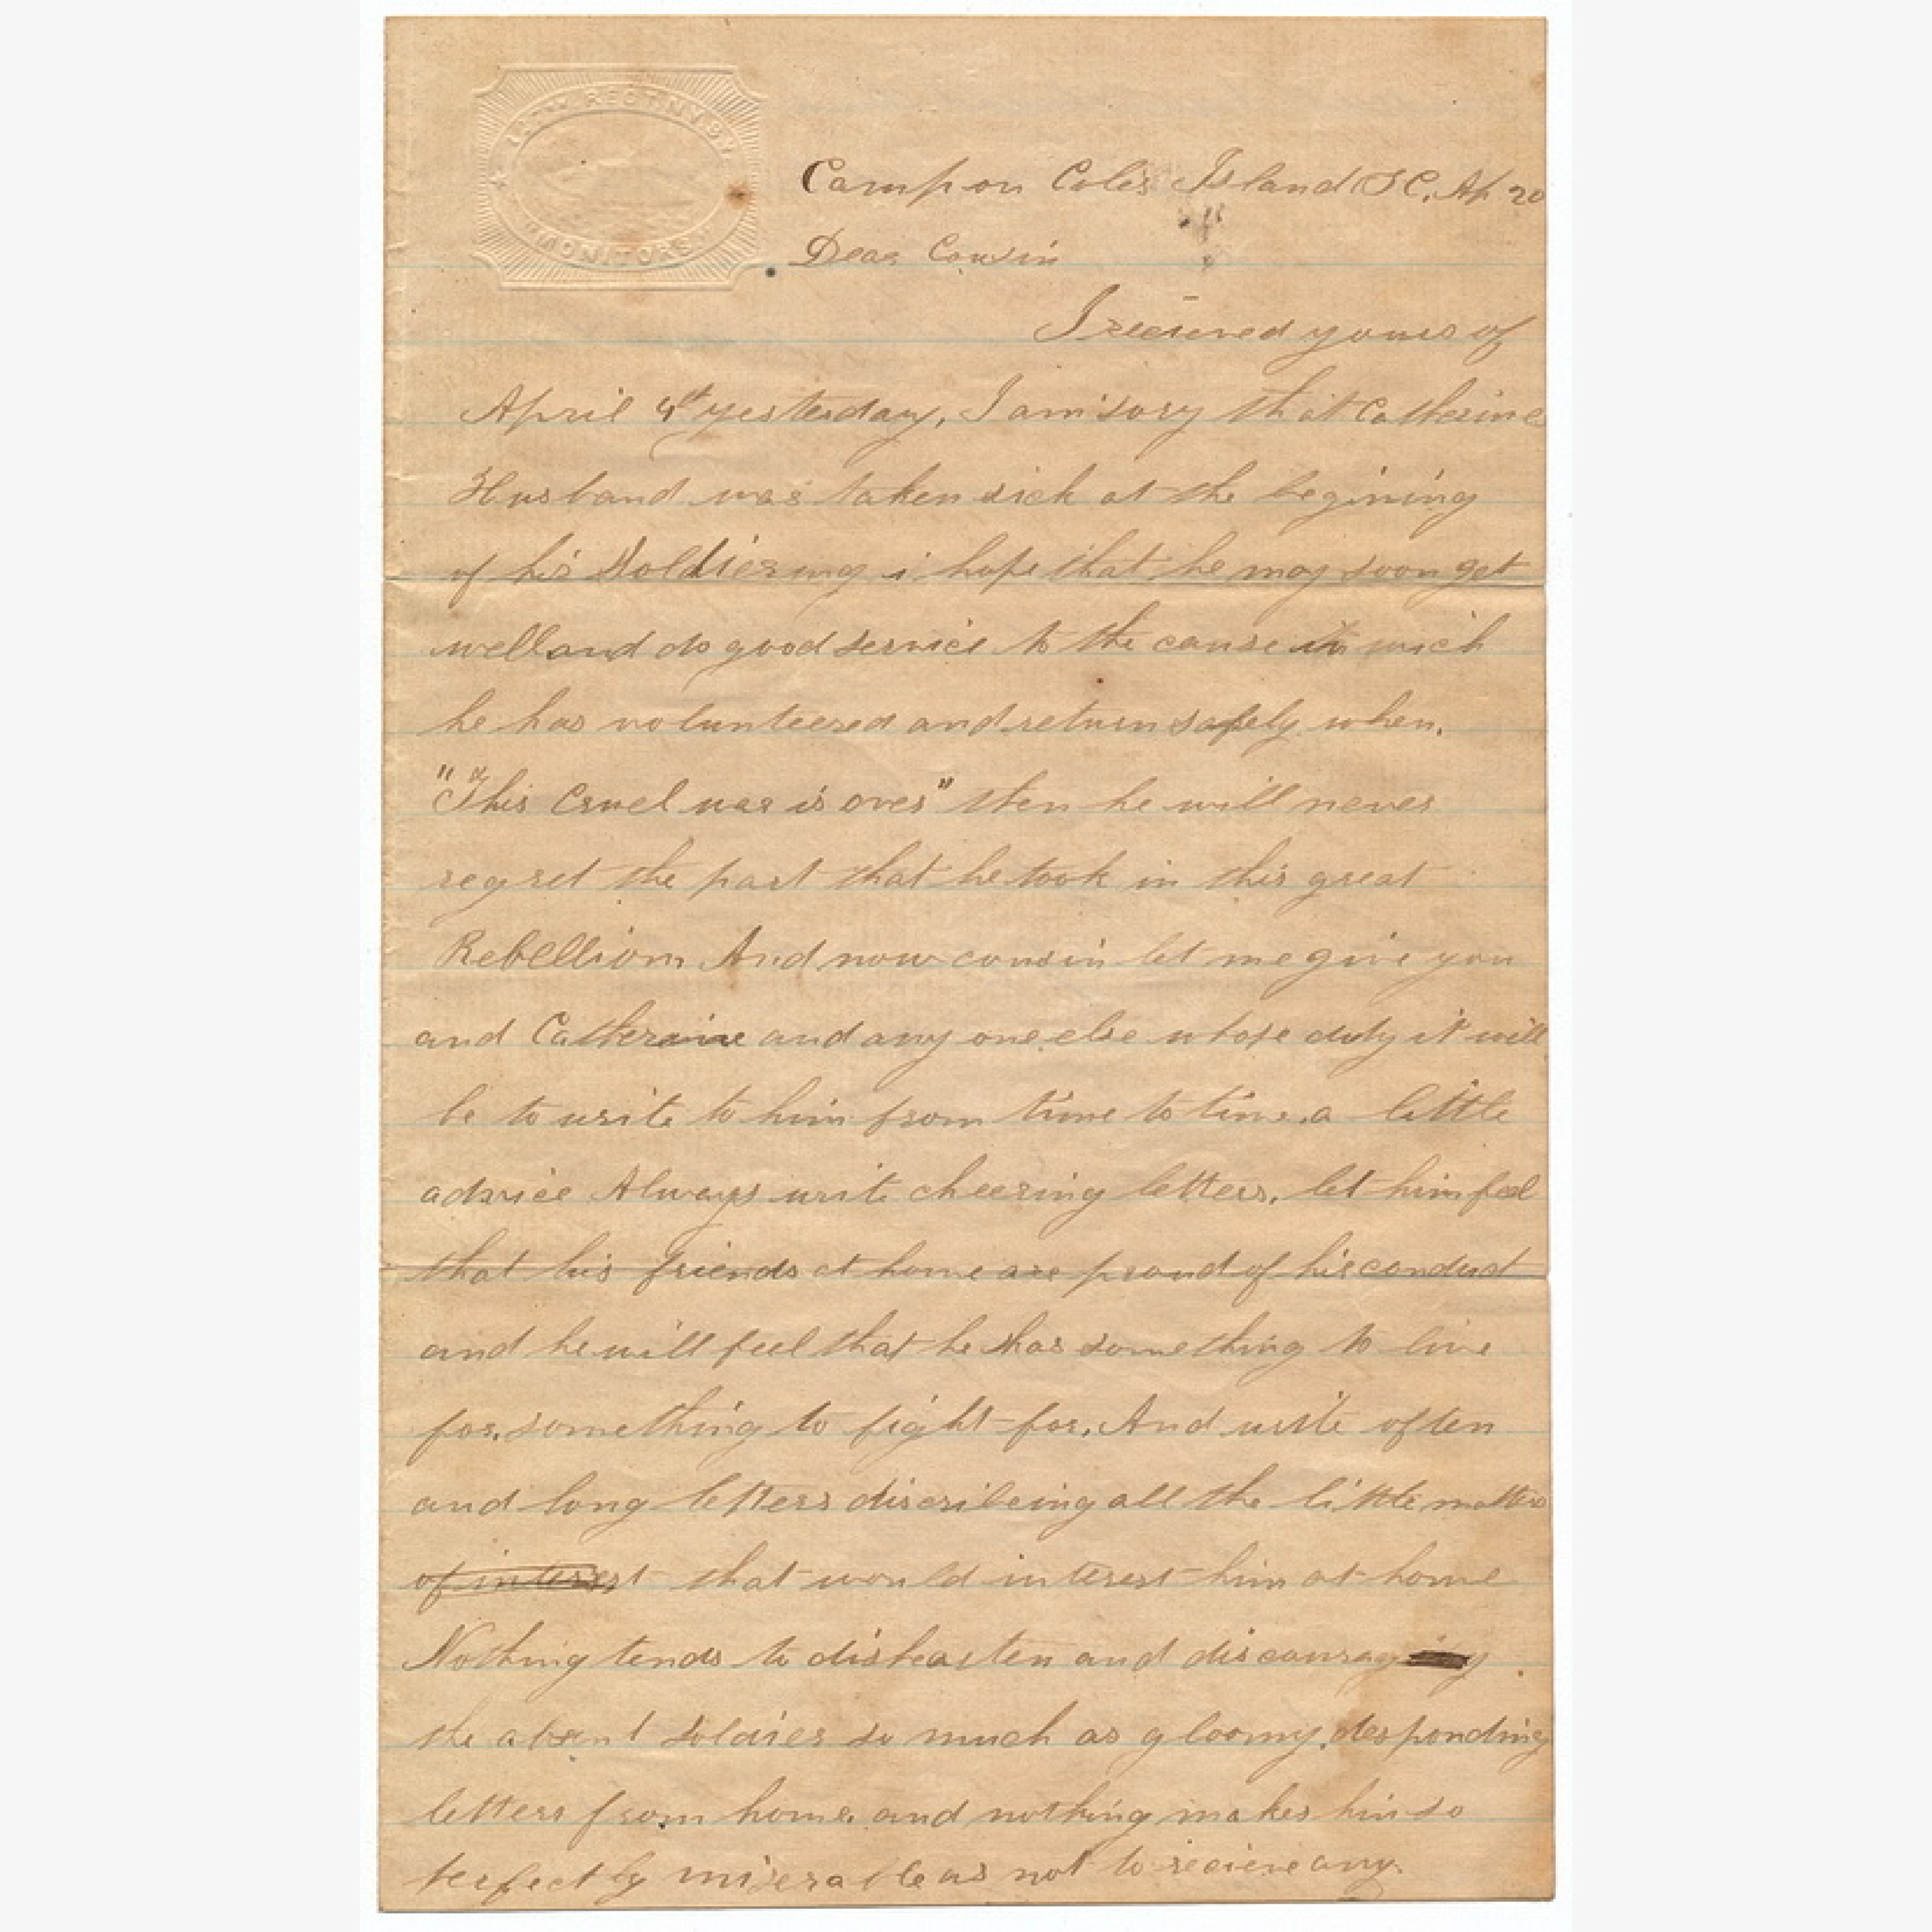 REGT. N.Y.S.V.
"MONITORS"
Camp on Coles Island S C. Ap 20
Dear Cousin
I recieved yours of
April 4th yesterday, I am sory that Catherine
Husband was taken sick at the begining
of his Soldiering i hope that he may soon get
well and do good service to the cause in wich
he has volunteered and return safely when,
"This Cruel war is over" then he will never
regret the part that he took in this great
Rebellion, And now cousin let me give you
and Catherine and any one else whose duty it will
be to write to him from time to time, a little
advice Always write cheering letters, let him feel
that his friends at home are proud of his conduct
and he will feel that he has something to live
for, something to fight for, And write often
and long letters discribeing all the little matters
of interest that would interest him at home
Nothing tends to dishearten and discourag
the absent soldier so much as gloomy, desponding
letters from home, and nothing makes him so
perfectly miserable as not to recieve any.